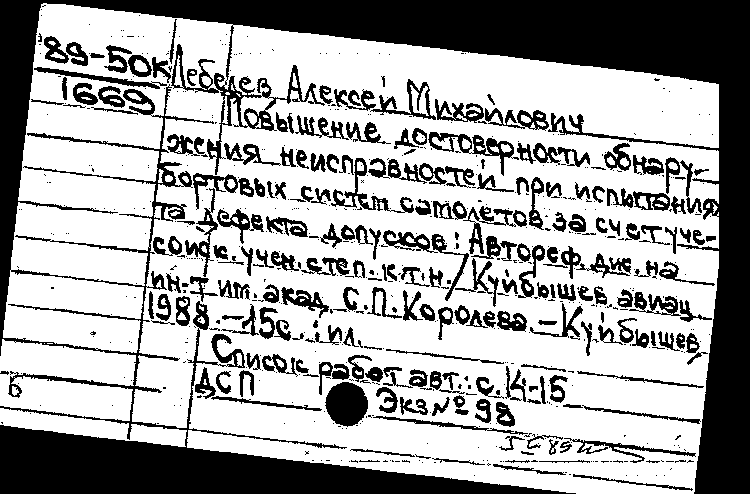 89-50к
1669
Лебедев Алексей Михайлович
Повышение достоверности обнару-
жения неисправностей при испытаниях
бортовых систем самолетов за счет уче-
та дефекта допусков: Автореф. дис. на
соиск. учен. степ. к.т.н. / Куйбышев. авиац.
ин-т им. акад. С.П. Королева. – Куйбышев,
1988. – 15с. : ил.
Список работ авт.: с. 14-15
ДСП Экз № 98
Б